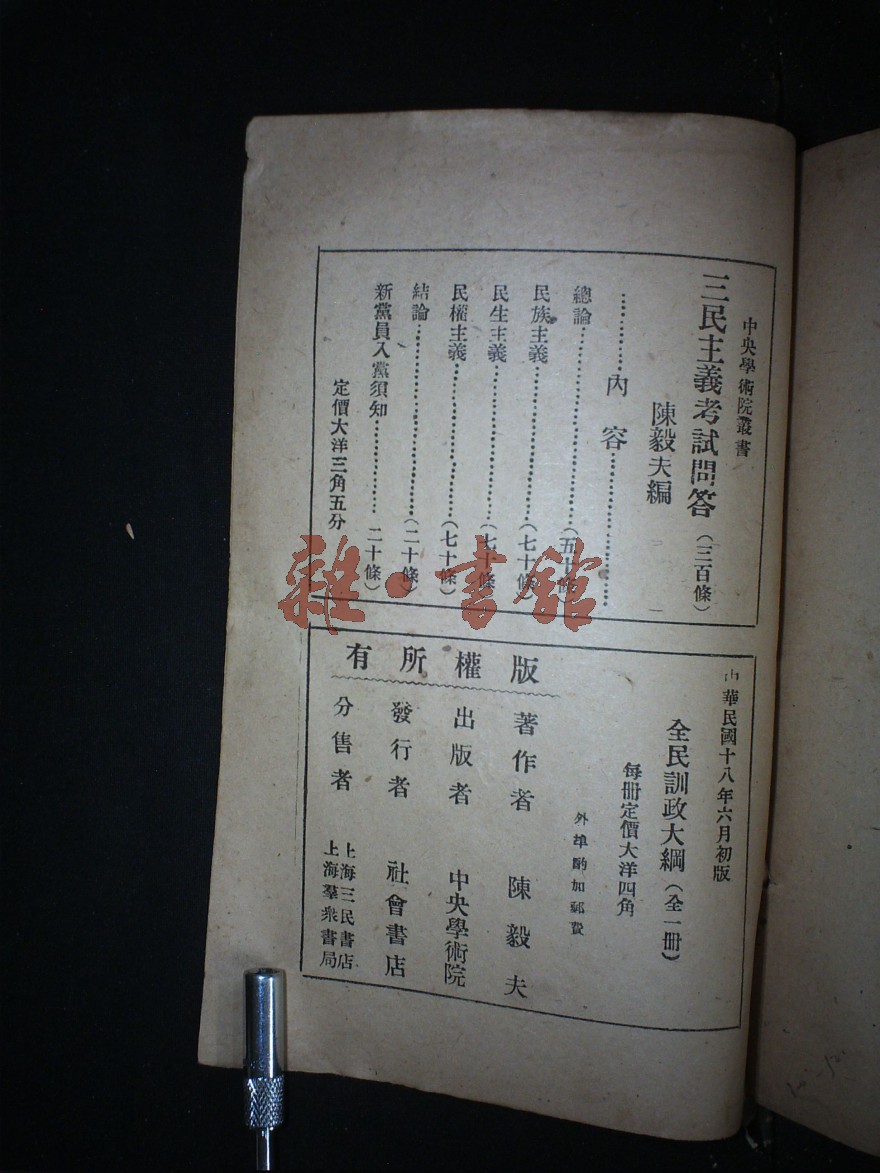 中央學術院叢書
三民主義考試問答（三百條）
陳毅夫編
…………內容……………………
總論……………………………（五十條）
民族主義………………………（七十條）
民生主義………………………（七十條）
民權主義………………………（七十條）
結論……………………………（二十條）
新黨員入黨須知……………二十條）
定價大洋三角五分
中華民國十八年六月初版
全民訓政大綱（全一冊）
每冊定價大洋四角
外埠酌加郵費
版權所有
著作者 陳毅夫
出版者 中央學術院
發行者 社會書店
分售者 上海三民書店
上海羣衆書局
雜·書館